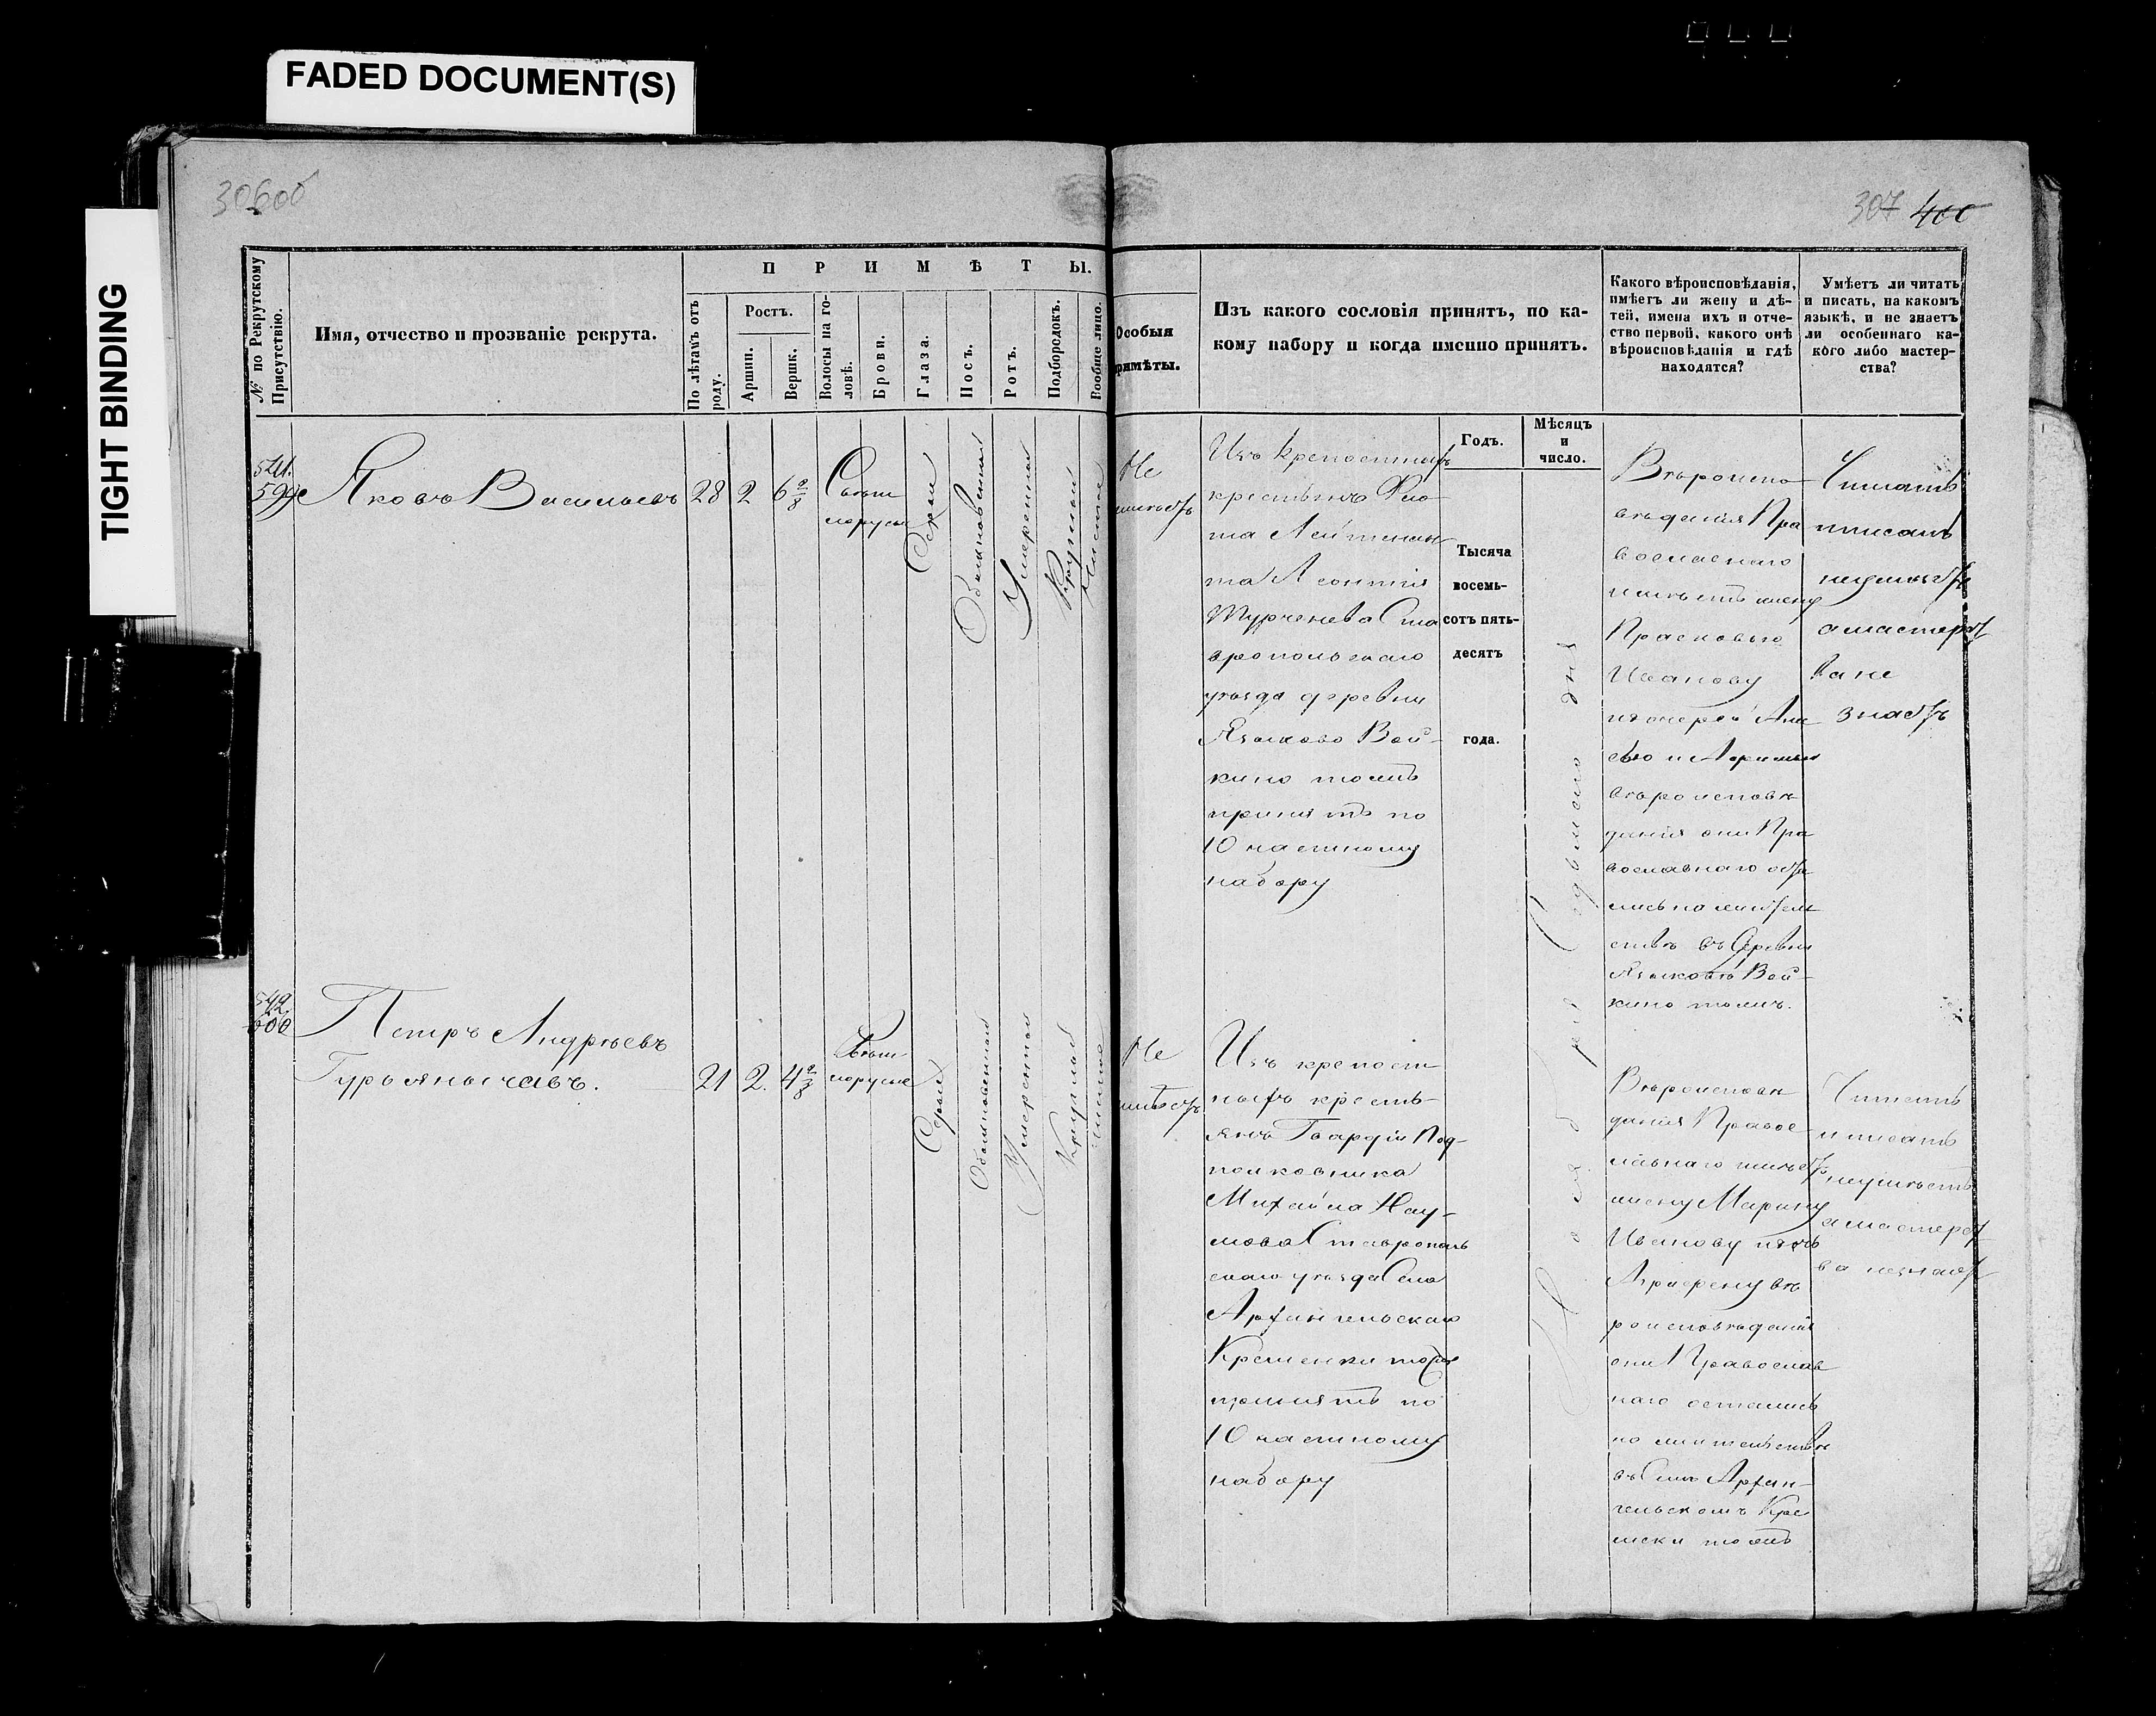 FADED DOCUMENT(S)
TIGHT BINDING
306об
307 400
№ по Рекрутскому Присутствію.
Имя, отчество и прозваніе рекрута.
ПРИМѢТЫ.
По лѣтамъ отъ роду.
Ростъ.
Аршин.
Вершк.
Волосы на головѣ.
Брови.
Глаза.
Носъ.
Ротъ.
Подбородокъ.
Вообще лицо.
Особыя
примѣты.
Изъ какого сословія принятъ, по ка-
кому набору и когда именно принятъ.
Годъ.
Мѣсяцъ
и
число.
Какого вѣроисповѣданія,
имѣетъ ли жену и дѣ-
тей, имена ихъ и отче-
ство первой, какого онѣ
вѣроисповѣданія и гдѣ
находятся?
Умѣетъ ли читать
и писать, на какомъ
языкѣ, и не знаетъ
ли особеннаго ка-
кого либо мастер-
ства?
541.
599
Яковъ Васильевъ 28 2 6 2/8
Свѣт
лорусы
Серые
Обыкновенный
Умеренный
Круглый
Чистое
Не
имѣетъ
Изъ крепостныхъ
крестьянъ Фло
та Лейтенан
та Леонтия
Турченева Ста
вропольскаго
уѣзда деревни
Языково Вой-
кино тожъ
принятъ по
10 частному
набору
Тысяча
восемь-
сотъ пять-
десятъ
года.
дня
Вѣроиспо
вѣдания Пра
вославнаго
имѣетъ жену
Прасковью
Иванову
дочерей Ани
сью и
вѣроисповѣ
дания они Пра
вославнаго оста
лись по житель
ствѣ въ Деревни
Языковѣ Вой-
кино тожъ.
Читать
и писать
неумѣетъ
а мастерст
ва не
знаетъ
542.
600
Петръ Андрѣевъ
21 2. 4 2/8
Свѣт
лорусые
Серые
Обыкновенный
Умеренный
Круглый
Чистое
Не
имѣетъ
Изъ крепост
ныхъ кресть
янъ Гвардіи Под-
полковника
Михайла Нау-
мова Ставрополь
скаго уѣзда Села
Архангельскаго
Кременки тожъ
принятъ по
10 частному
набору
Вѣроисповѣ
дания Правос
лавнаго имѣетъ
жену Марину
Иванову дочь
Аграфену вѣ
роисповѣдания
они Православ
наго остались
по жительствѣ
въ Селѣ Архан-
гельскомъ Кре
менки тожъ
Читать
и писать
неумѣетъ
а мастерст
ва незнаетъ